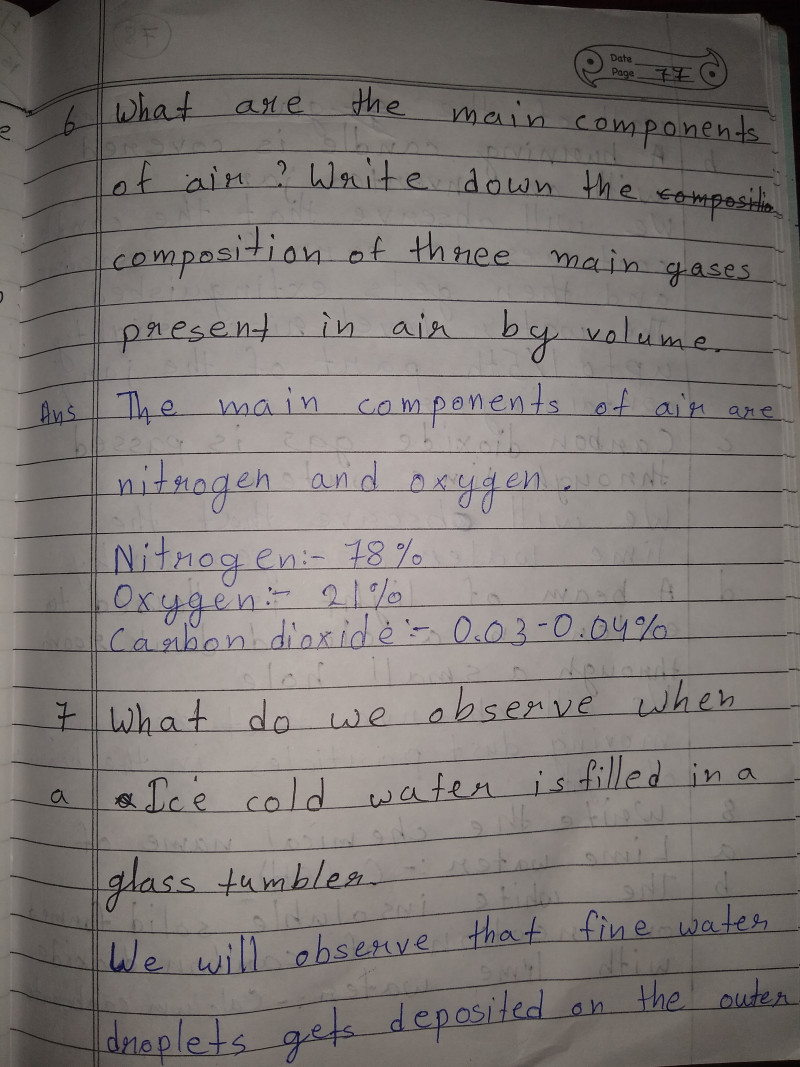 Date
Page 77
6 What are the main components
of air? Write down the compositio
composition of three main gases
present in air by volume.
Ans The main components of air are
nitrogen and oxygen.
Nitrogen:- 78%
Oxygen:- 21%
Carbon dioxide:- 0.03-0.04%
7 What do we observe when
a Ice cold water is filled in a
glass tumbler.
We will observe that fine water
droplets gets deposited on the outer